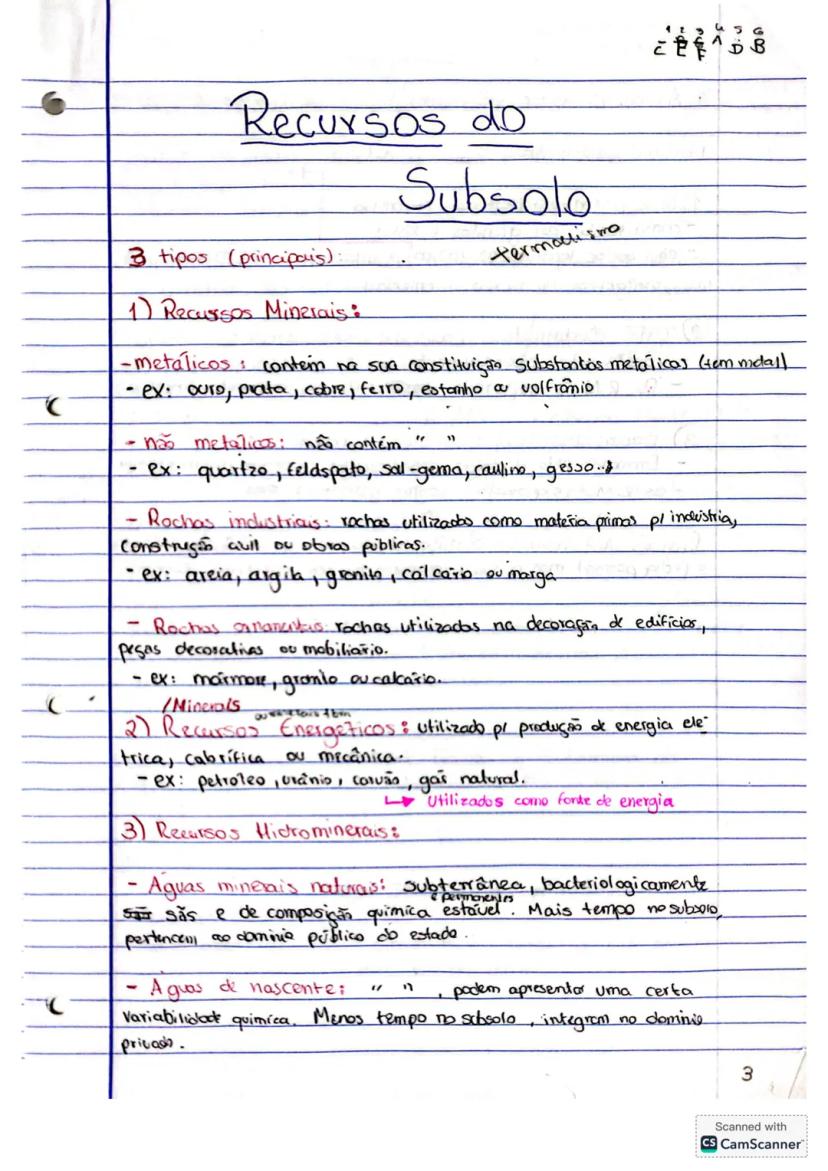 1 2 3 4 5 6
C E F A D B
Recursos do
Subsolo
termalismo
3 tipos (principais)
1) Recursos Minerais:
- metálicos: contêm na sua constituição substantôs metálicas (tem metal)
- ex: ouro, prata, cobre, ferro, estanho ou volfrâmio
- não metálicos: não contêm " "
- ex: quartzo, feldspato, sal-gema, caulino, gesso...
- Rochas industriais: rochas utilizadas como matéria primas p/ indústria,
construção civil ou obras públicas.
- ex: areia, argila, granito, calcário ou marga
- Rochas ornamentais: rochas utilizadas na decoração de edifícios,
peças decorativas ou mobiliário.
- ex: mármore, granito ou calcário.
/Minerals
2) Recursos Energéticos: utilizado p/ produção de energia elé-
trica, calorífica ou mecânica.
- ex: petroleo, urânio, carvão, gás natural.
↳ Utilizados como fonte de energia
3) Recursos Hidrominerais:
- Águas minerais naturais: subterrânea, bacteriologicamente
e permanentes
sãs e de composição química estável. Mais tempo no subsolo,
pertencem ao dominio público do estado.
- Águas de nascente: " ", podem apresentar uma certa
variabilidade química. Menos tempo no subsolo, integram no domínio
privado.
3
Scanned with
CS CamScanner